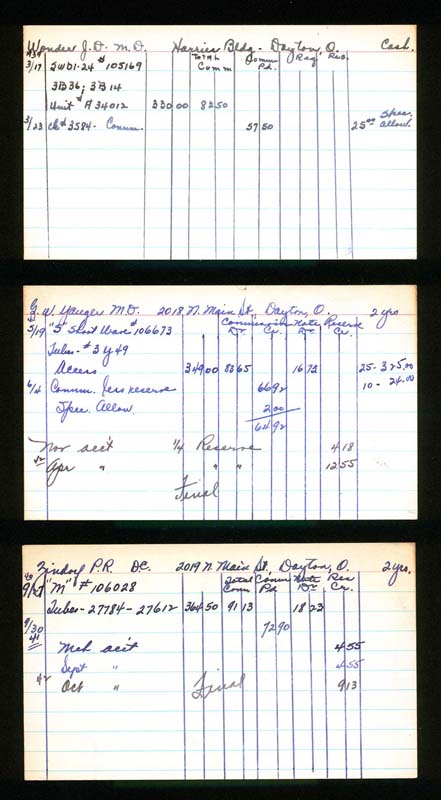 Wonder J.D. M.D. Harries Bldg - Dayton, O. Cash
Total Comm Comm Pd. Res
3/17 SWD1-24 # 105169
3B36; 3B14
Unit # A 34012 330 00 82 50
3/23 ck # 3584 - Comm. 57 50 25 00 Spec. allow.
G. W. Yauger M.D. 2018 N. Main St., Dayton, O. 2 yrs
Commission Note Reserve
Dr. Cr. Dr. Cr.
5/19 "S" Short Wave # 106673
Tubes - # 3 y 49
Access 349 00 83 65 16 73 25 - 325.00
6/4 Comm. less reserve 66 92 10 - 24.00
Spec. Allow 2 00
64 92
Nov acc't 1/4 Reserve 4 18
42 Apr " " " 12 55
Final
Zindorf P.R. DC. 2019 N. Main St, Dayton, O. 2 yrs.
Total Comm Comm Pd. Note Dr Res Cr.
40 9/27 "M" # 106028
Tubes - 27784 - 27612 364 50 91 13 18 23
9/30 72 90
41 Mch acc't 4 55
Sept " 4 55
42 Oct " Final 9 13